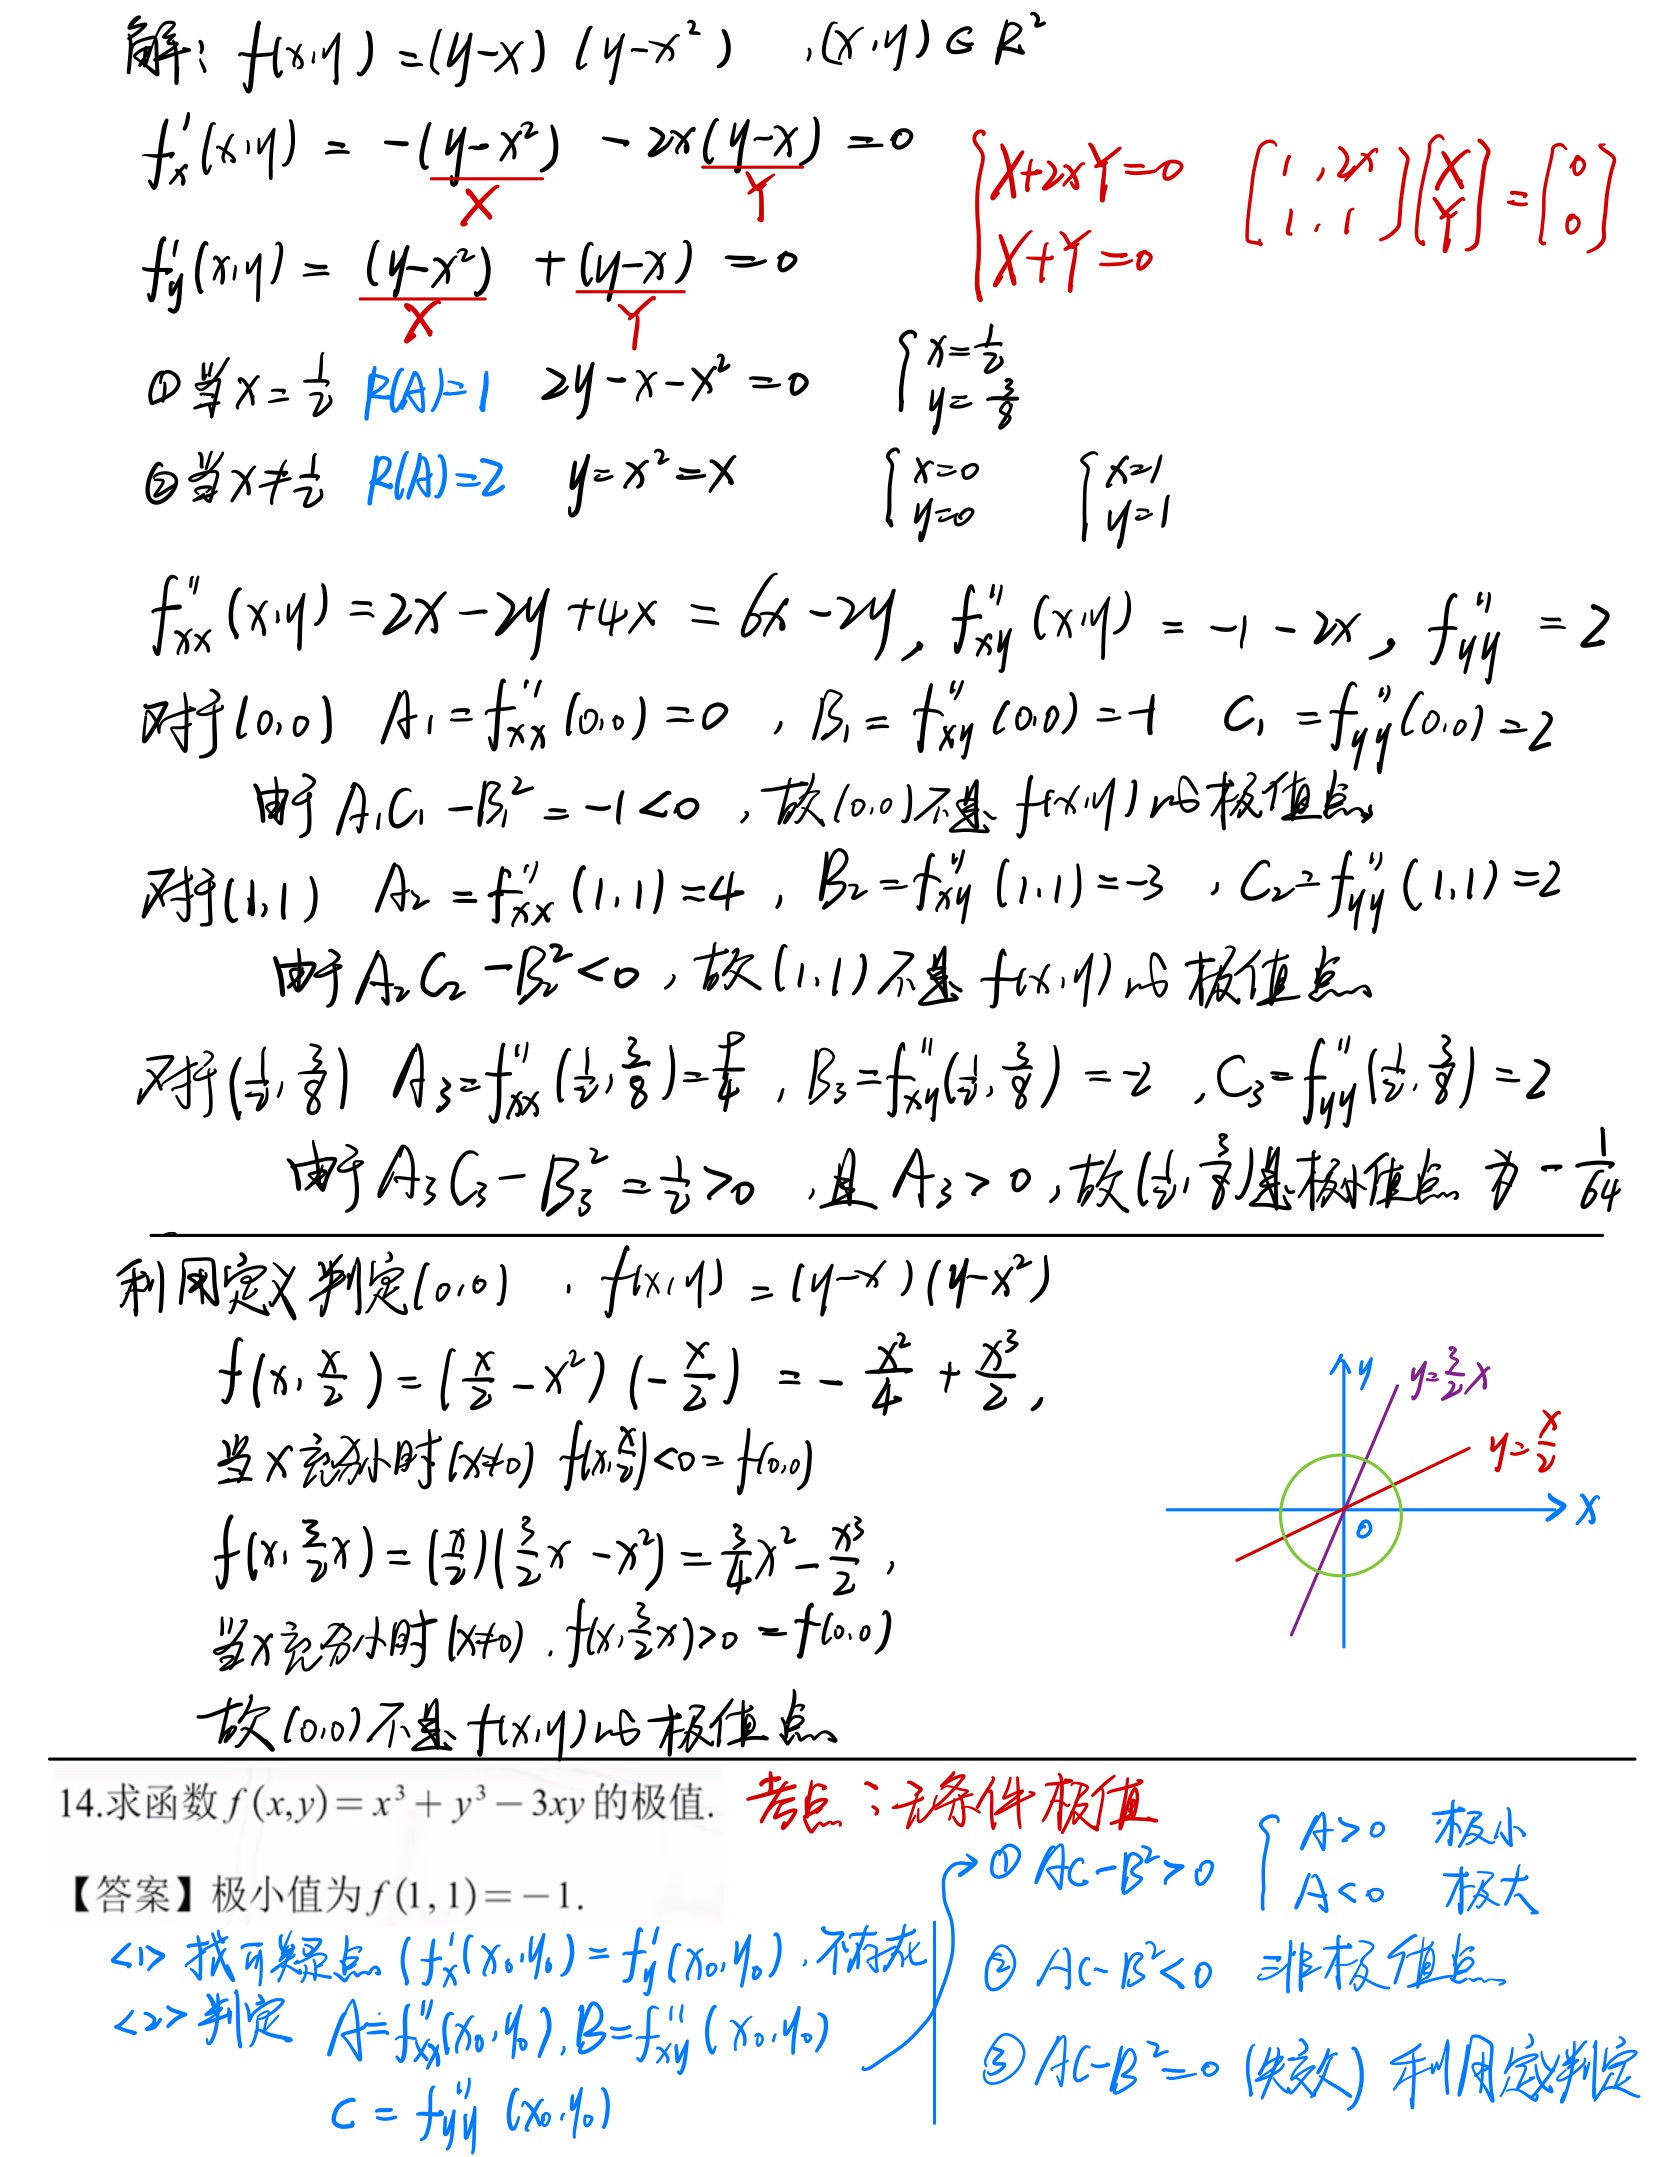 解: f(x,y) = (y-x)(y-x²) , (x,y) ∈ R²
f'x(x,y) = -(y-x²) - 2x(y-x) = 0
X Y
{ X+2xY=0
X+Y=0
[1, 2x; 1, 1][X; Y] = [0; 0]
f'y(x,y) = (y-x²) + (y-x) = 0
X Y
① 当 x = 1/2 R(A)=1 2y-x-x²=0 { x=1/2 y=3/8
② 当 x≠1/2 R(A)=2 y=x²=x { x=0 y=0 { x=1 y=1
f''xx(x,y) = 2x-2y+4x = 6x-2y, f''xy(x,y) = -1-2x, f''yy = 2
对于(0,0) A₁=f''xx(0,0)=0 , B₁=f''xy(0,0)=-1 C₁=f''yy(0,0)=2
由于 A₁C₁-B₁²=-1<0 , 故(0,0)不是 f(x,y)的极值点
对于(1,1) A₂=f''xx(1,1)=4 , B₂=f''xy(1,1)=-3 , C₂=f''yy(1,1)=2
由于 A₂C₂-B₂²<0 , 故(1,1)不是 f(x,y)的极值点
对于(1/2, 3/8) A₃=f''xx(1/2, 3/8)=9/4 , B₃=f''xy(1/2, 3/8)=-2 , C₃=f''yy(1/2, 3/8)=2
由于 A₃C₃-B₃²=1/2>0 , 且 A₃>0 , 故(1/2, 3/8)是极小值点 为 -1/64
利用定义判定(0,0) , f(x,y)=(y-x)(y-x²)
f(x, x/2) = (x/2-x²)(-x/2) = -x²/4 + x³/2 ,
当x充分小时(x≠0) f(x, x/2)<0=f(0,0)
f(x, 3/2x) = (x/2)(3/2x-x²) = 3/4x² - x³/2 ,
当x充分小时(x≠0) , f(x, 3/2x)>0=f(0,0)
故(0,0)不是 f(x,y)的极值点
y y=3/2x
y=x/2
0 x
14.求函数f(x,y)=x³+y³-3xy的极值. 考点:无条件极值
【答案】极小值为f(1,1)=-1.
<1> 找可疑点 (f'x(x₀,y₀)=f'y(x₀,y₀) , 不存在
<2> 判定 A=f''xx(x₀,y₀), B=f''xy(x₀,y₀)
C=f''yy(x₀,y₀)
① AC-B²>0 { A>0 极小
A<0 极大
② AC-B²<0 非极值点
③ AC-B²=0 (失效) 利用定义判定